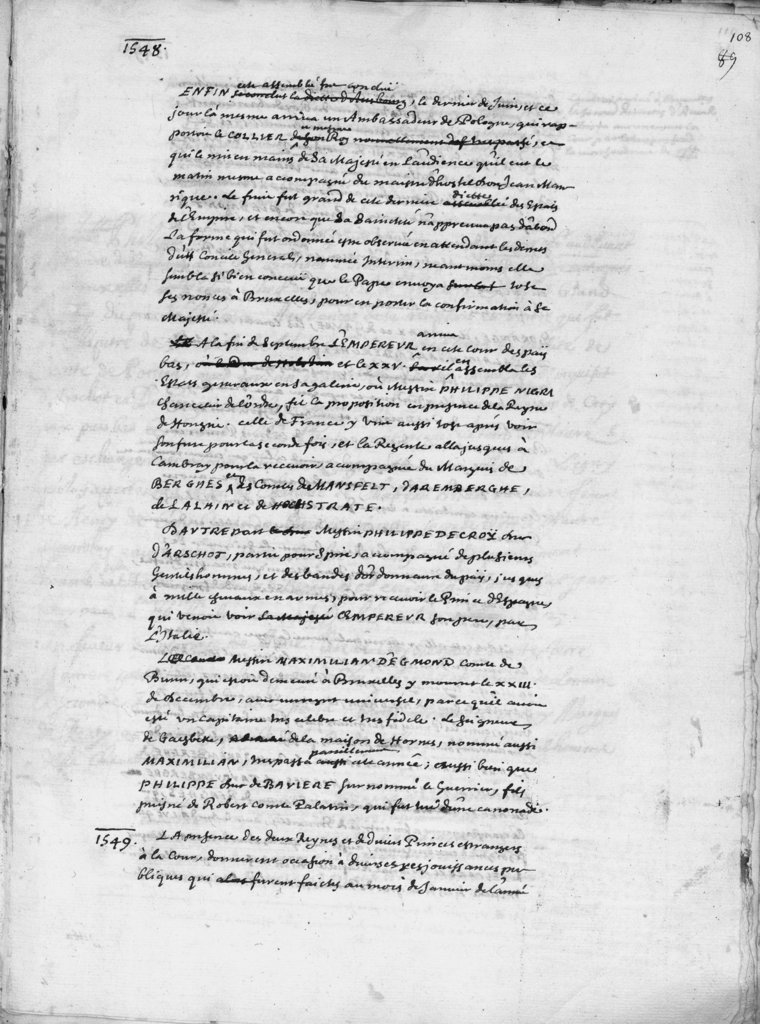 108
89
1548.
ENFIN cete assemblée fut concluë se conclut la diette d'Ausbourg, le dernier de Juin, et ce
jour là mesme arriva un Ambassadeur de Pologne, qui rap-
portoit le COLLIER du mesme Roy nouvellement trespassé, et
qui le mit en mains de Sa Majesté en l'audience qu'il eut le
matin mesme accompagné du maistre d'hostel Don Jean Man-
rique. Le fruit fut grand de cete derniere diette assemblée des Estats
de l'Empire, et encore que Sa Sainteté n'appreuva pas d'abord
La forme qui fut ordonnée estre observée en attendant les
dudit Concile General, nommée Interim, neantmoins elle
sembla si bien conceuë que le Pape envoya tost
ses nonces à Bruxelles, pour en porter la confirmation à Sa
Majesté.
A la fin de Septembre L'EMPEREUR arriva en cete Cour des pais
bas, où le Duc de Holstein et le XXV. assembla les
Estats generaux en sa galerie, où Messire PHILIPPE NIGRI
Chancelier de l'ordre, fit la proposition en presence de la Reyne
de Hongrie. celle de France y vint aussi tost aprés voir
son frere pour la seconde fois, et la Regente alla jusques à
Cambray pour la recevoir accompagnée du Marquis de
BERGHES et des Comtes de MANSFELT, D'AREMBERGHE,
de LALAIN et de HOCHSTRATE.
D'AUTRE part Messire PHILIPPE DE CROŸ Duc
D'ARSCHOT, partit pour Spire, accompagné de plusieurs
Gentilshommes, et des bandes d'ordonnance du païs, jusques
à mille chevaux en armes, pour recevoir le Prince d'Espagne,
qui venoit voir sa Majesté L'EMPEREUR son pere, par
L'Italie.
Messire MAXIMILIAN D'EGMOND Comte de
Buren, qui estoit demeuré à Bruxelles y mourut le XXIII.
de Decembre, avec un regret universel, parce qu'il avoit
esté un Capitaine tres celebre et tres fidele. Le Seigneur
de Gaesbeke, de la maison de Hornes, nommé aussi
MAXIMILIAN, trespassa pareillement aussi cete année; aussi bien que
PHILIPPE Duc de BAVIERE surnommé le Guerrier, fils
puisné de Robert Comte Palatin, qui fut tué d'une canonade.
1549. LA presence des deux Reynes et de divers Princes estrangers
à la Cour, donnerent occasion à diverses resjouissances pu-
bliques qui furent faictes au mois de Janvier de l'année